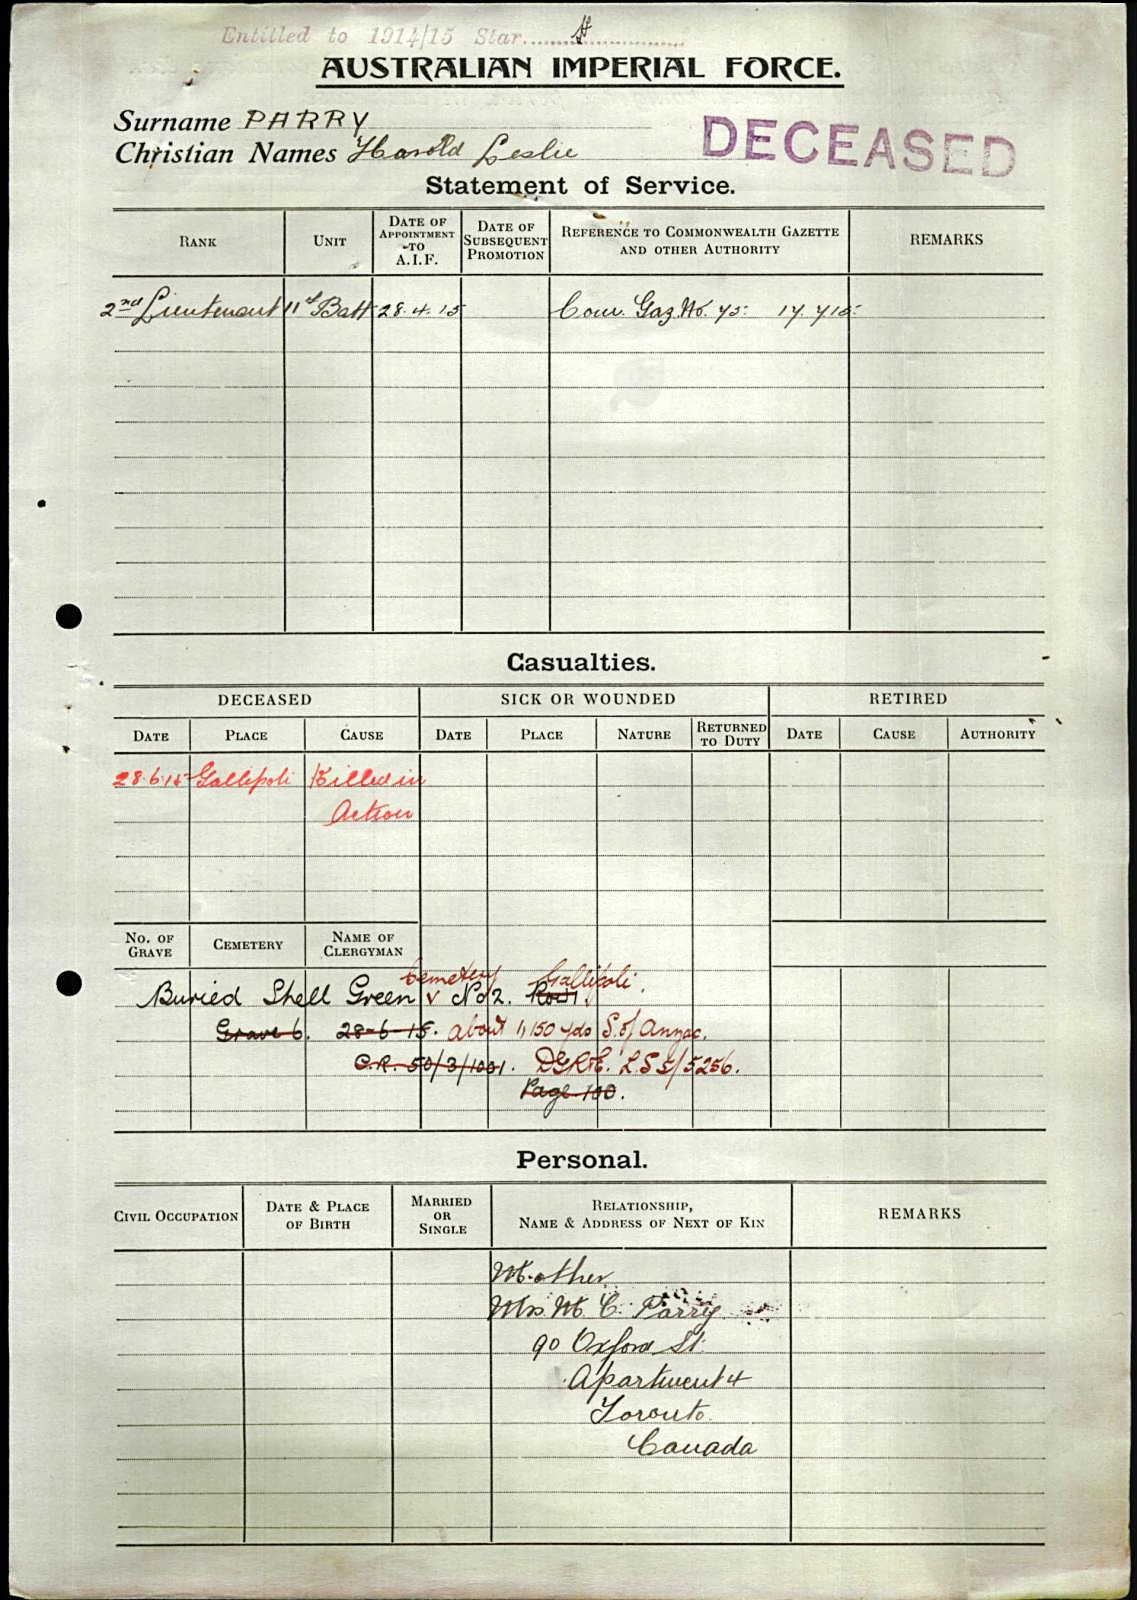 Entitled to 1914/15 Star
AUSTRALIAN IMPERIAL FORCE.
Surname PARRY
Christian Names Harold Leslie
DECEASED
Statement of Service.
RANK UNIT DATE OF APPOINTMENT TO A.I.F. DATE OF SUBSEQUENT PROMOTION REFERENCE TO COMMONWEALTH GAZETTE AND OTHER AUTHORITY REMARKS
2nd Lieutenant 11th Batt 28.4.15 Com. Gaz. No. 75. 17.7.15.
Casualties.
DECEASED SICK OR WOUNDED RETIRED
DATE PLACE CAUSE DATE PLACE NATURE RETURNED TO DUTY DATE CAUSE AUTHORITY
28.6.15 Gallipoli Killed in
Action
NO. OF GRAVE CEMETERY NAME OF CLERGYMAN
Cemetery Gallipoli.
Buried Shell Green No 2. Row 1.
Grave 6. 28-6-15. about 1,150 yds S. of Anzac.
C.R. 50/3/1001. DGR&E.
Page 100.
Personal.
CIVIL OCCUPATION DATE & PLACE OF BIRTH MARRIED OR SINGLE RELATIONSHIP, NAME & ADDRESS OF NEXT OF KIN REMARKS
Mother
Mrs M. C. Parry
90 Oxford St.
Apartment 4
Toronto.
Canada